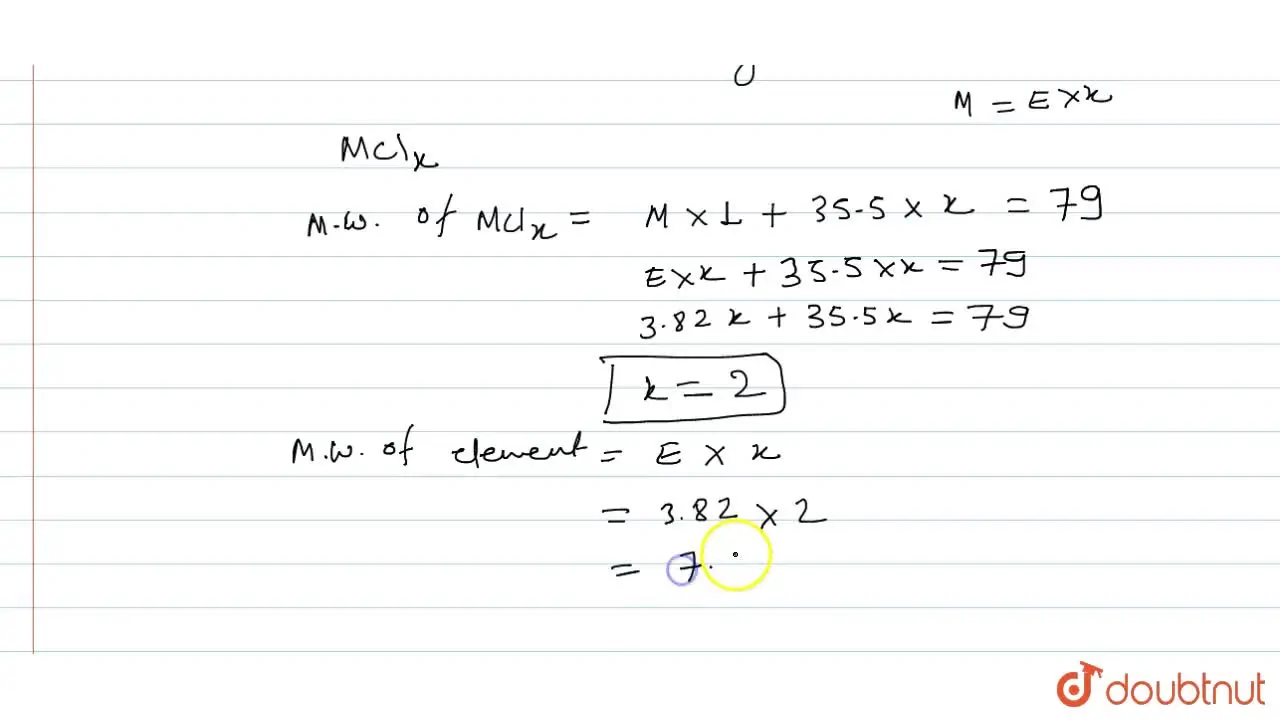 M = E × x
MClx
M.W. of MClx = M × 1 + 35.5 × x = 79
E × x + 35.5 × x = 79
3.82 x + 35.5x = 79
x = 2
M.W. of element = E × x
= 3.82 × 2
= 7.
doubtnut